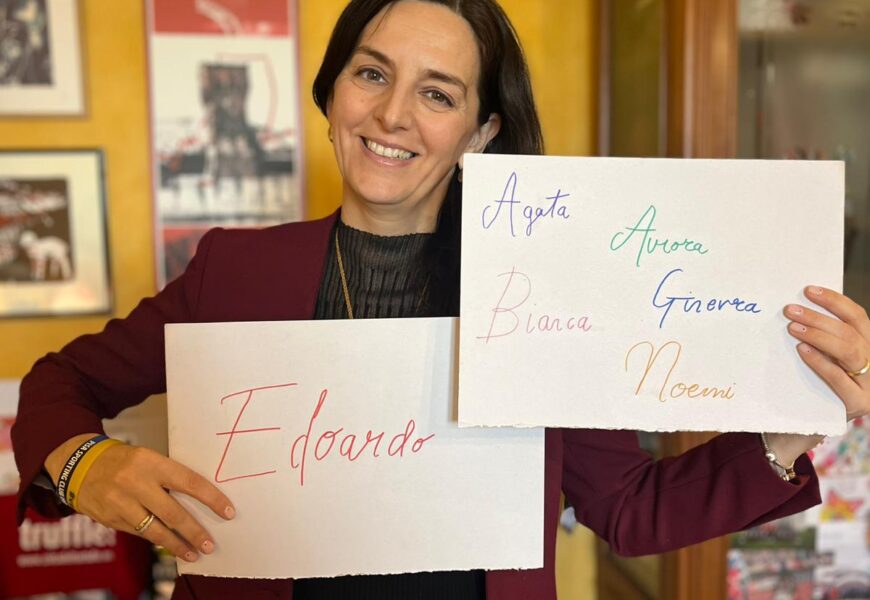 Agata
Aurora
Bianca
Ginevra
Noemi
Edoardo
PISA SPORTING CLUB
truffle